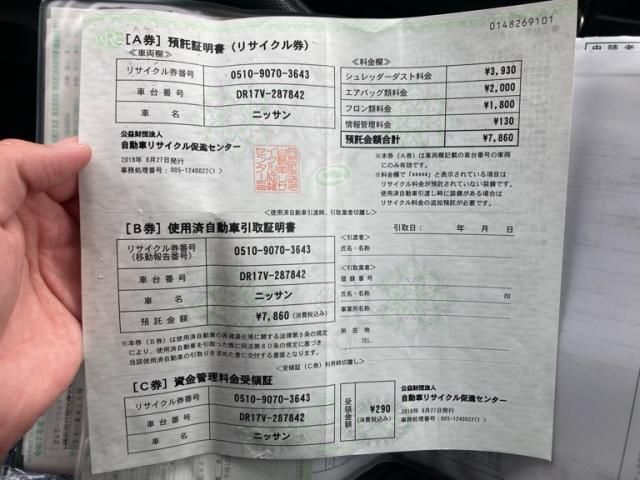 0148269101
[A券] 預託証明書(リサイクル券)
≪車両欄≫
リサイクル券番号 0510-9070-3643
車台番号 DR17V-287842
車名 ニッサン
公益財団法人
自動車リサイクル促進センター
2018年 8月27日発行
事務処理番号: 005-1240022(1)
≪料金欄≫
シュレッダーダスト料金 ¥3,930
エアバッグ類料金 ¥2,000
フロン類料金 ¥1,800
情報管理料金 ¥130
預託金額合計 ¥7,860
※本券(A券)は車両欄記載の車台番号の車両
にのみ有効です。
※料金欄で「*****」と表示されている項目は
リサイクル料金が預託されていない装備です。
使用済自動車引渡し時に装備がある場合は
リサイクル料金の追加預託が必要です。
<使用済自動車引渡時、引取業者切離し>
[B券] 使用済自動車引取証明書
リサイクル券番号
(移動報告番号) 0510-9070-3643
車台番号 DR17V-287842
車名 ニッサン
預託金額 ¥7,860 (消費税込み)
※本券(B券)は使用済自動車の再資源化等に関する法律第9条の規定
により、使用済自動車を引取った際に同法第80条の規定に基づき
当該使用済自動車の引取りを求めた者に交付する書面となります。
引取日: 年 月 日
<引渡者>
氏名・名称
<引取業者>
登録番号
氏名・名称 印
事業所名称
所在地
TEL.
<受領証(C券)利用時切離し>
[C券] 資金管理料金受領証
リサイクル券番号 0510-9070-3643
車台番号 DR17V-287842
車名 ニッサン
受領金額 ¥290
(消費税込み)
公益財団法人
自動車リサイクル促進センター
2018年 8月27日発行
事務処理番号: 005-1240022(1)
申請者